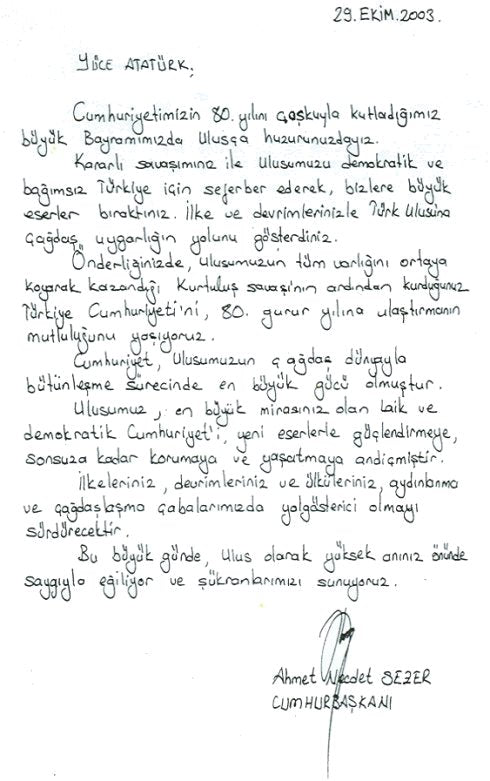 29.EKİM.2003.
YÜCE ATATÜRK;
Cumhuriyetimizin 80.yılını coşkuyla kutladığımız
büyük Bayramımızda Ulusça huzurunuzdayız.
Kararlı savaşımınız ile Ulusumuzu demokratik ve
bağımsız Türkiye için seferber ederek, bizlere büyük
eserler bıraktınız. İlke ve devrimlerinizle Türk Ulusuna
çağdaş uygarlığın yolunu gösterdiniz.
Önderliğinizde, ulusumuzun tüm varlığını ortaya
koyarak kazandığı Kurtuluş savaşı'nın ardından kurduğunuz
Türkiye Cumhuriyeti'ni, 80. gurur yılına ulaştırmanın
mutluluğunu yaşıyoruz.
Cumhuriyet, Ulusumuzun çağdaş dünyayla
bütünleşme sürecinde en büyük gücü olmuştur.
Ulusumuz, en büyük mirasınız olan laik ve
demokratik Cumhuriyet'i, yeni eserlerle güçlendirmeye,
sonsuza kadar korumaya ve yaşatmaya andiçmiştir.
İlkeleriniz, devrimleriniz ve ülküleriniz, aydınlanma
ve çağdaşlaşma çabalarımızda yolgösterici olmayı
sürdürecektir.
Bu büyük günde, Ulus olarak yüksek anınız önünde
saygıyla eğiliyor ve şükranlarımızı sunuyoruz.
Ahmet Necdet SEZER
CUMHURBAŞKANI